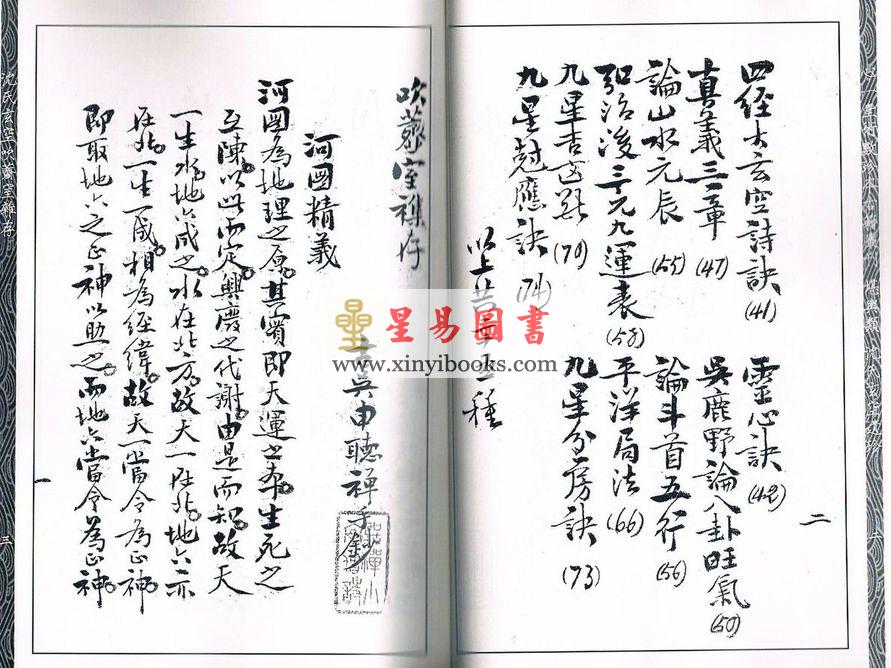 四经太玄空詩訣 (41)
靈心訣 (42)
真義三章 (47)
吳鹿野論八卦旺氣 (50)
論山水元辰 (55)
論斗首五行 (56)
弘治後三元九運表 (58)
平洋局法 (66)
九星吉凶斷 (70)
九星分房訣 (73)
九星尅應訣 (74)
二
星易圖書
www.xinyibooks.com
吹虀室襍存
吳由聽禪子鈔
河圖精義
河圖為地理之原。其實即天運之本。生死之
互陳。以此而定。興廢之代謝。由是而知。故天
一生水。地六成之。水在北方。故天一在北。地六亦
在北。一生一成。相為經緯。故天一當令為正神。
即取地六之正神以助之。而地六當令為正神。
一